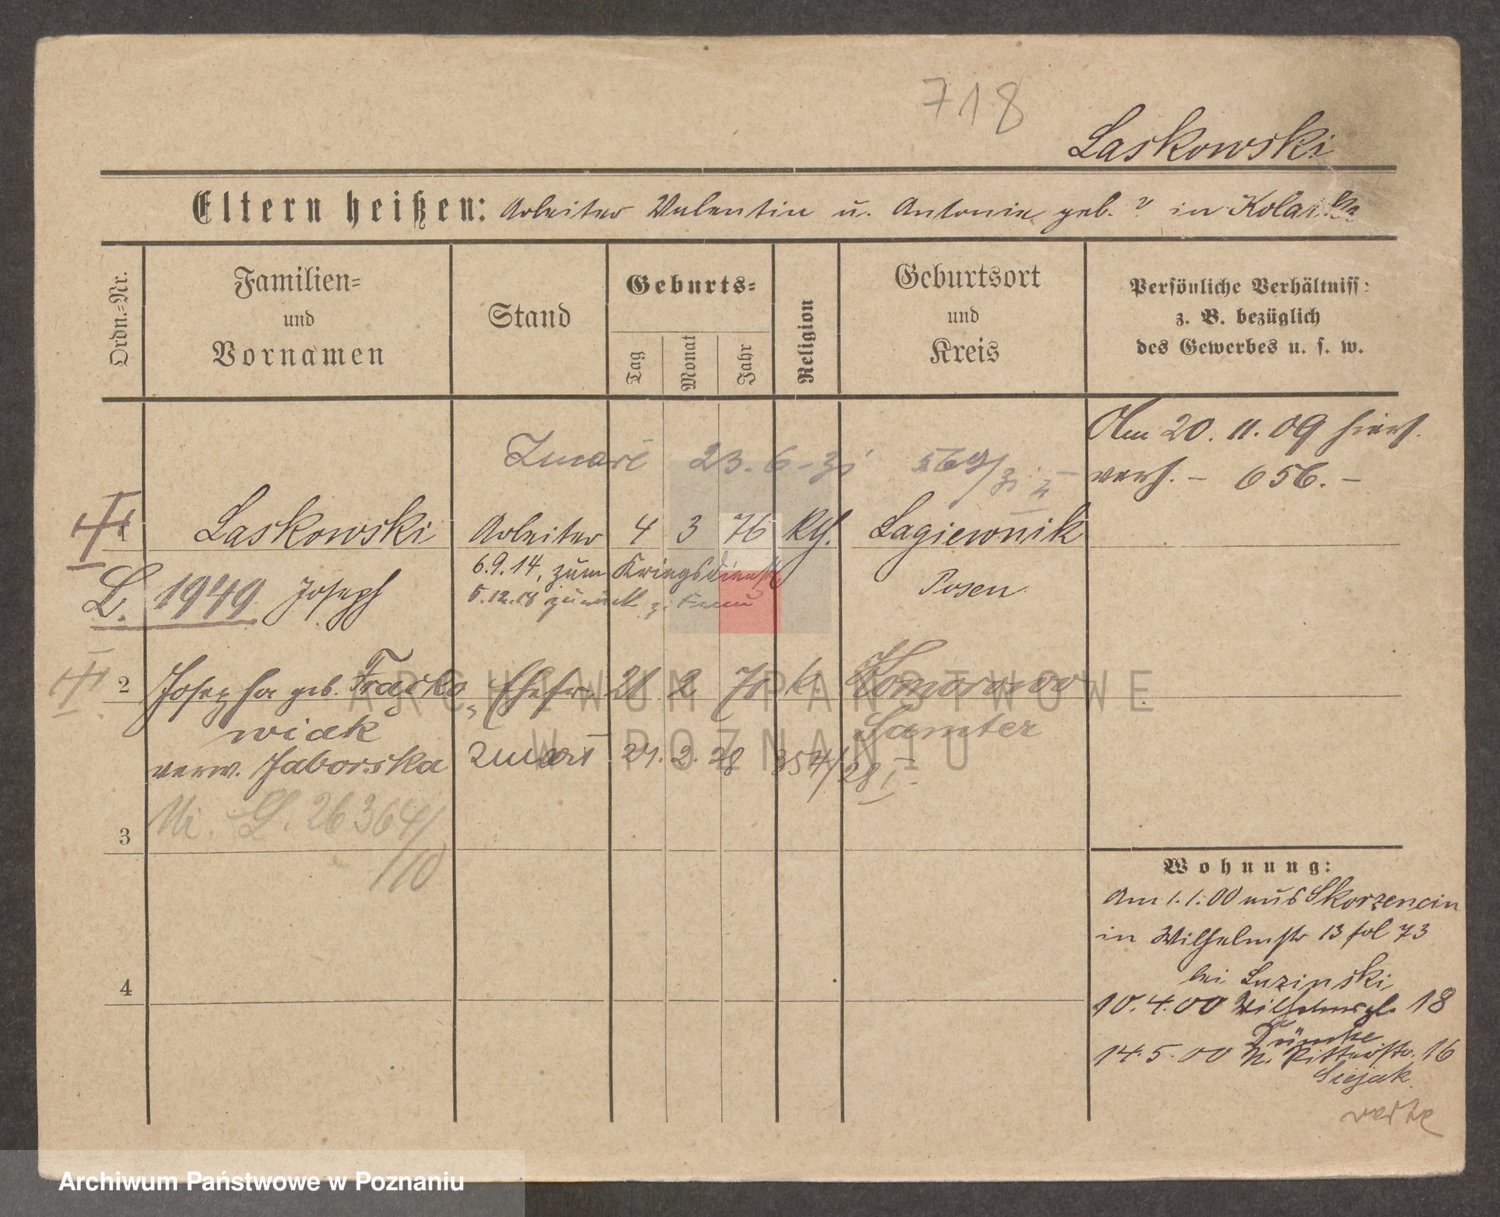 718
Laskowski
Eltern heißen: Arbeiter Valentin u. Antonie geb. ? in
Ordn.-Nr.
Familien=
und
Vornamen
Stand
Geburts=
Tag
Monat
Jahr
Religion
Geburtsort
und
Kreis
Persönliche Verhältniss:
z. B. bezüglich
des Gewerbes u. s. w.
Am 20. 11. 09 hiers.
verh. – 656. –
Zmarł 23. 6 - 31 569/31
1 Laskowski Arbeiter 4 3 76 kth. Lagiewnik
6.9.14, zum Kriegsdienst
L. 1949 Joseph
5.12.18 zurück
Posen
2 Josepha geb. Fraćko Ehefr. 21 2 70 k. Komorowo
wiak
Samter
verw. Jaborska Zmarł 21. 2. 28 354/28 I
L. 26364/10
3
4
Wohnung:
Am 1.1.00 aus Skorzencin
in Wilhelmstr 13 fol 73
bei Luzinski
10.4.00 18
14.5.00 N. Ritterstr. 16
Siejak
verte
ARCHIWUM PAŃSTWOWE
W POZNANIU
Archiwum Państwowe w Poznaniu